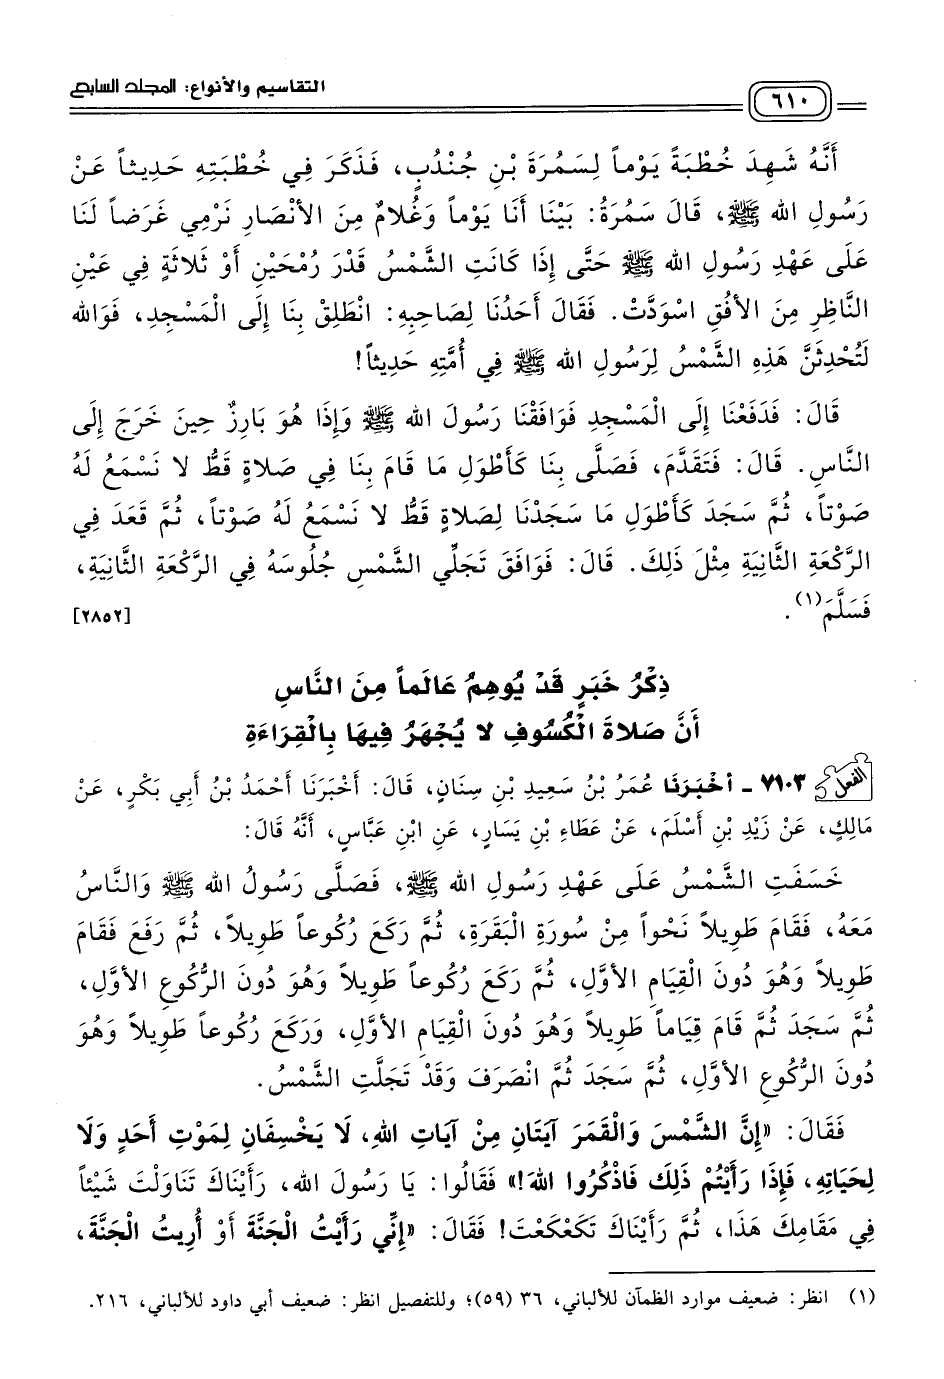 التقاسيم والأنواع: المجلد السابع
٦١٠
أَنَّهُ شَهِدَ خُطْبَةً يَوْماً لِسَمُرَةَ بْنِ جُنْدُبٍ، فَذَكَرَ فِي خُطْبَتِهِ حَدِيثاً عَنْ
رَسُولِ الله ﷺ، قَالَ سَمُرَةُ: بَيْنَا أَنَا يَوْماً وَغُلَامٌ مِنَ الأَنْصَارِ نَرْمِي غَرَضاً لَنَا
عَلَى عَهْدِ رَسُولِ الله ﷺ حَتَّى إِذَا كَانَتِ الشَّمْسُ قَدْرَ رُمْحَيْنِ أَوْ ثَلَاثَةٍ فِي عَيْنِ
النَّاظِرِ مِنَ الأُفُقِ اسْوَدَّتْ. فَقَالَ أَحَدُنَا لِصَاحِبِهِ: انْطَلِقْ بِنَا إِلَى الْمَسْجِدِ، فَوَالله
لَتُحْدِثَنَّ هَذِهِ الشَّمْسُ لِرَسُولِ الله ﷺ فِي أُمَّتِهِ حَدِيثاً!
قَالَ: فَدَفَعْنَا إِلَى الْمَسْجِدِ فَوَافَقْنَا رَسُولَ الله ﷺ وَإِذَا هُوَ بَارِزٌ حِينَ خَرَجَ إِلَى
النَّاسِ. قَالَ: فَتَقَدَّمَ، فَصَلَّى بِنَا كَأَطْوَلِ مَا قَامَ بِنَا فِي صَلَاةٍ قَطُّ لا نَسْمَعُ لَهُ
صَوْتاً، ثُمَّ سَجَدَ كَأَطْوَلِ مَا سَجَدْنَا لِصَلَاةٍ قَطُّ لا نَسْمَعُ لَهُ صَوْتاً، ثُمَّ قَعَدَ فِي
الرَّكْعَةِ الثَّانِيَةِ مِثْلَ ذَلِكَ. قَالَ: فَوَافَقَ تَجَلِّي الشَّمْسِ جُلُوسَهُ فِي الرَّكْعَةِ الثَّانِيَةِ،
فَسَلَّمَ(١). [٢٨٥٢]
ذِكْرُ خَبَرٍ قَدْ يُوهِمُ عَالَماً مِنَ النَّاسِ
أَنَّ صَلاةَ الْكُسُوفِ لا يُجْهَرُ فِيهَا بِالْقِرَاءَةِ
الفعل ٧١٠٣ - أَخْبَرَنَا عُمَرُ بْنُ سَعِيدِ بْنِ سِنَانٍ، قَالَ: أَخْبَرَنَا أَحْمَدُ بْنُ أَبِي بَكْرٍ، عَنْ
مَالِكٍ، عَنْ زَيْدِ بْنِ أَسْلَمَ، عَنْ عَطَاءِ بْنِ يَسَارٍ، عَنِ ابْنِ عَبَّاسٍ، أَنَّهُ قَالَ:
خَسَفَتِ الشَّمْسُ عَلَى عَهْدِ رَسُولِ الله ﷺ، فَصَلَّى رَسُولُ الله ﷺ وَالنَّاسُ
مَعَهُ، فَقَامَ طَوِيلاً نَحْواً مِنْ سُورَةِ الْبَقَرَةِ، ثُمَّ رَكَعَ رُكُوعاً طَوِيلاً، ثُمَّ رَفَعَ فَقَامَ
طَوِيلاً وَهُوَ دُونَ الْقِيَامِ الأَوَّلِ، ثُمَّ رَكَعَ رُكُوعاً طَوِيلاً وَهُوَ دُونَ الرُّكُوعِ الأَوَّلِ،
ثُمَّ سَجَدَ ثُمَّ قَامَ قِيَاماً طَوِيلاً وَهُوَ دُونَ الْقِيَامِ الأَوَّلِ، وَرَكَعَ رُكُوعاً طَوِيلاً وَهُوَ
دُونَ الرُّكُوعِ الأَوَّلِ، ثُمَّ سَجَدَ ثُمَّ انْصَرَفَ وَقَدْ تَجَلَّتِ الشَّمْسُ.
فَقَالَ: «إِنَّ الشَّمْسَ وَالْقَمَرَ آيَتَانِ مِنْ آيَاتِ اللهِ، لَا يَخْسِفَانِ لِمَوْتِ أَحَدٍ وَلَا
لِحَيَاتِهِ، فَإِذَا رَأَيْتُمْ ذَلِكَ فَاذْكُرُوا اللهَ!» فَقَالُوا: يَا رَسُولَ الله، رَأَيْنَاكَ تَنَاوَلْتَ شَيْئاً
فِي مَقَامِكَ هَذَا، ثُمَّ رَأَيْنَاكَ تَكَعْكَعْتَ! فَقَالَ: «إِنِّي رَأَيْتُ الْجَنَّةَ أَوْ أُرِيتُ الْجَنَّةَ،
(١) انظر: ضعيف موارد الظمآن للألباني، ٣٦ (٥٩)؛ وللتفصيل انظر: ضعيف أبي داود للألباني، ٢١٦.